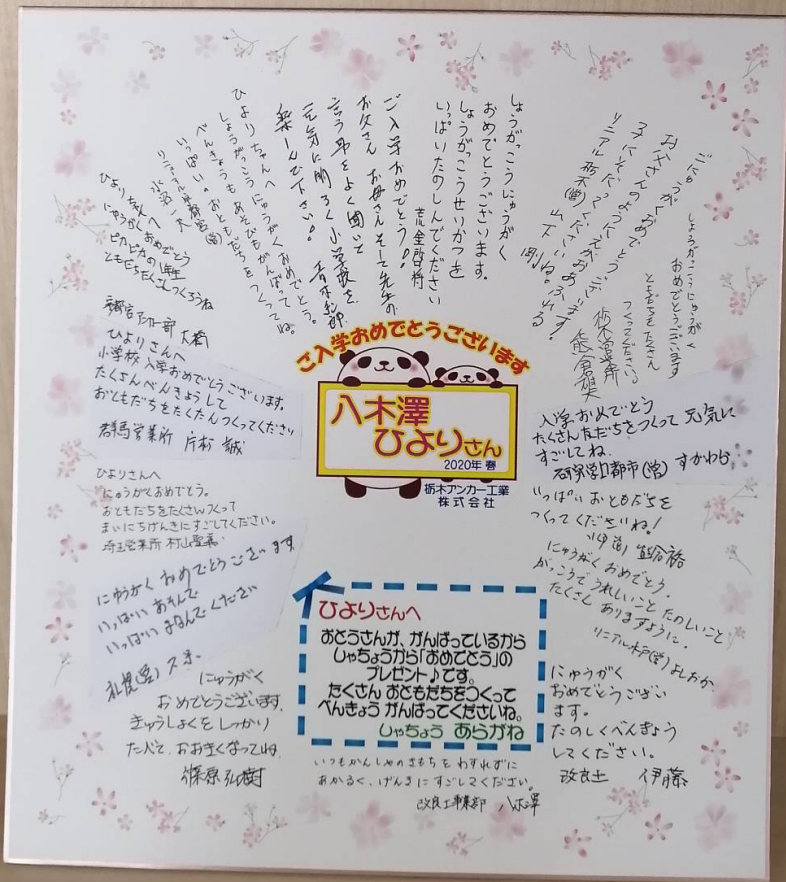 ご入学おめでとうございます
八木澤
ひよりさん
2020年 春
栃木アンカー工業
株式会社
しょうがっこうにゅうがく
おめでとうございます。
しょうがっこうせいかつを
いっぱいたのしんでください
荒金啓将
ご入学おめでとう!!
お父さん お母さん そして先生の
言う事をよく聞いて
元気に明るく小学校を
楽しんで下さい!
ひよりちゃんへ
しょうがっこうにゅうがくおめでとう。
べんきょうもあそびもがんばって
いっぱいのおともだちをつくってね。
ひよりちゃんへ
にゅうがくおめでとう
ピカピカの1年生
ともだちたくさんつくろうね
大橋
ひよりさんへ
小学校入学おめでとうございます。
たくさんべんきょうして
おともだちをたくさんつくってください
群馬営業所 片村 誠
ひよりさんへ
にゅうがくおめでとう。
おともだちをたくさんつくって
まいにちげんきにすごしてください。
埼玉営業所 村山
にゅうがく おめでとう ございます
いっぱい あそんで
いっぱい まなんで ください
札幌(営)
にゅうがく
おめでとうございます。
きゅうしょくをしっかり
たべて、おおきくなってね
篠原弘樹
ごにゅうがくおめでとうございます!
お父さんのようにえがおあふれる
子にそだってくださいね。
リニアル栃木(営) 山下 剛
しょうがっこうにゅうがく
おめでとうございます
ともだちをたくさん
つくってくださいね
栃木営業所
入学おめでとう
たくさん友だちをつくって 元気に
すごしてね。
研究学園都市(営) すがわら
いっぱいおともだちを
つくってくださいね!
にゅうがくおめでとう。
がっこうでうれしいこと たのしいこと
たくさんありますように。
リニアル水戸(営) よしおか
にゅうがく
おめでとうござい
ます。
たのしくべんきょう
してください。
改良土 伊藤
ひよりさんへ
おとうさんが、がんばっているから
しゃちょうから「おめでとう」の
プレゼント♪です。
たくさん おともだちをつくって
べんきょう がんばってくださいね。
しゃちょう あらがね
いつもかんしゃのきもちをわすれずに
あかるく、げんきにすごしてください。
改良工事業部 八木澤